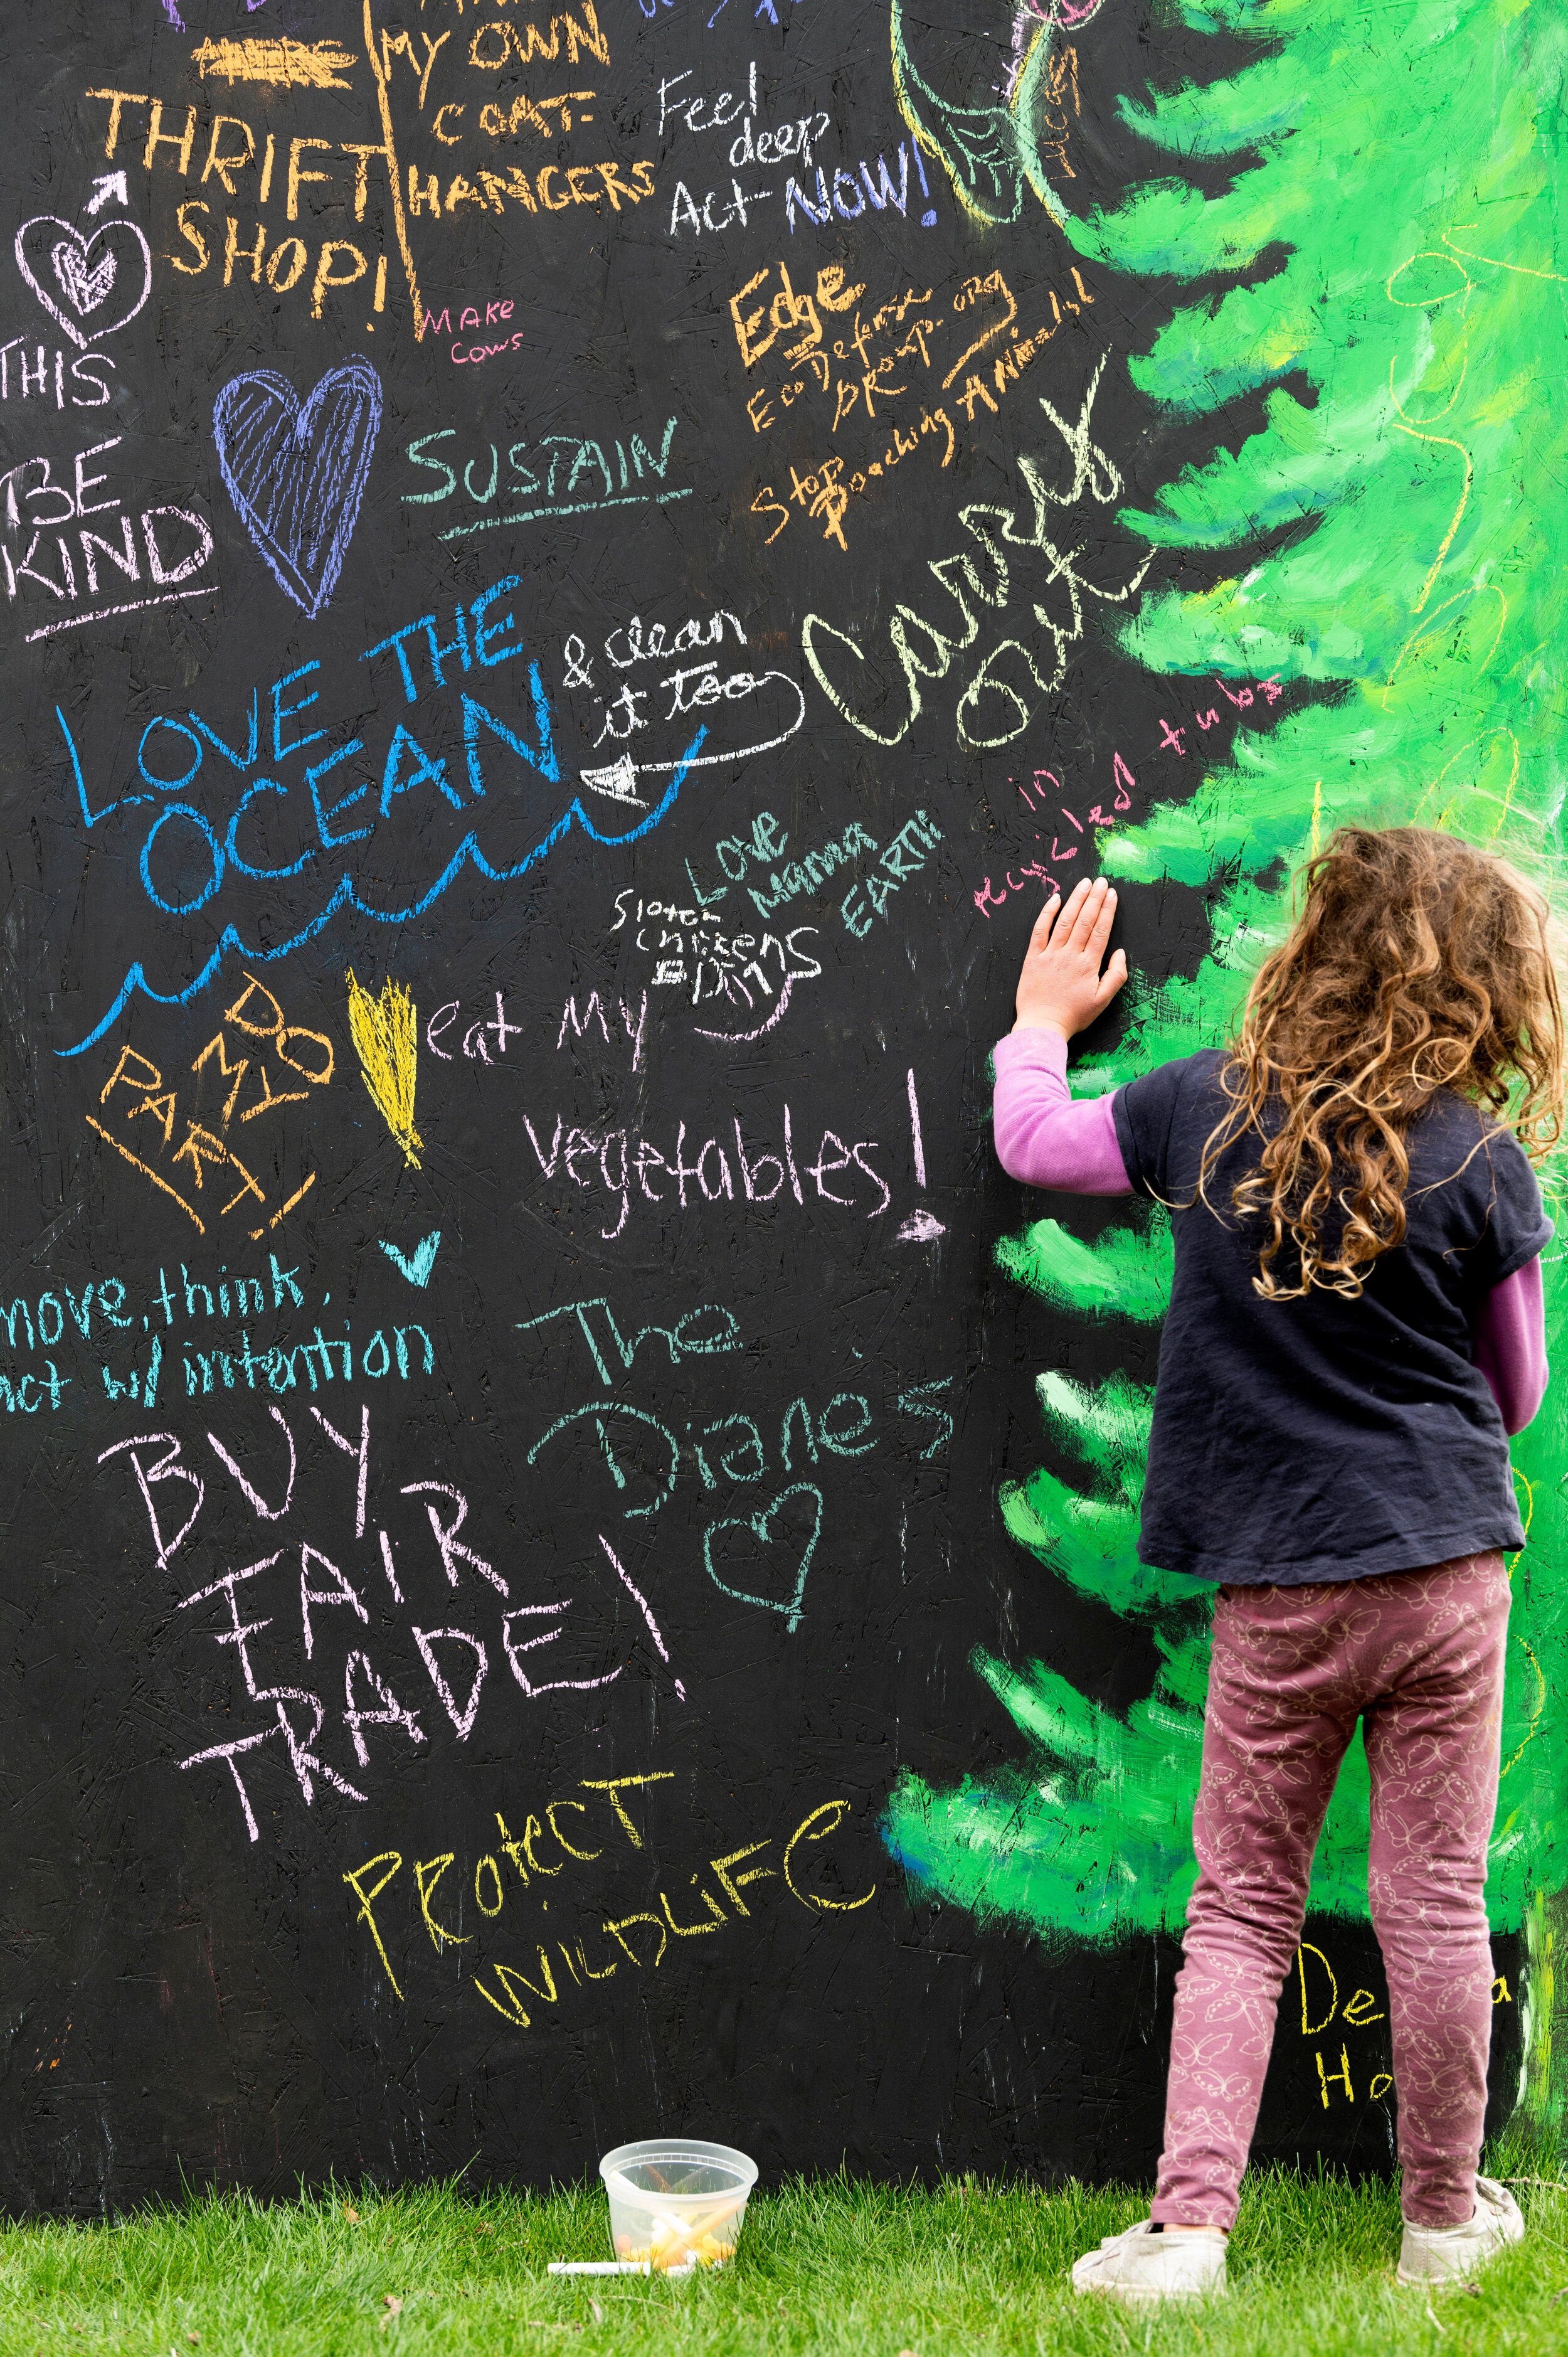 THRIFT
SHOP!
MY OWN
COAT-
HANGERS
Feel
deep
Act NOW!
LUCAS
MAKE
COWS
THIS
BE
KIND
SUSTAIN
Edge
EcoDefense
group.org
Stop Poaching Animals!
Carrots
out
LOVE THE
OCEAN
& clean
it too
in
recycled tubs
LOVE
Mama
EARTH
DO
MI
PART!
eat My
vegetables!
move, think,
act w/ intention
The
Dianes
BUY
FAIR
TRADE!
PROtecT
WILDLiFe
De
a
Ho